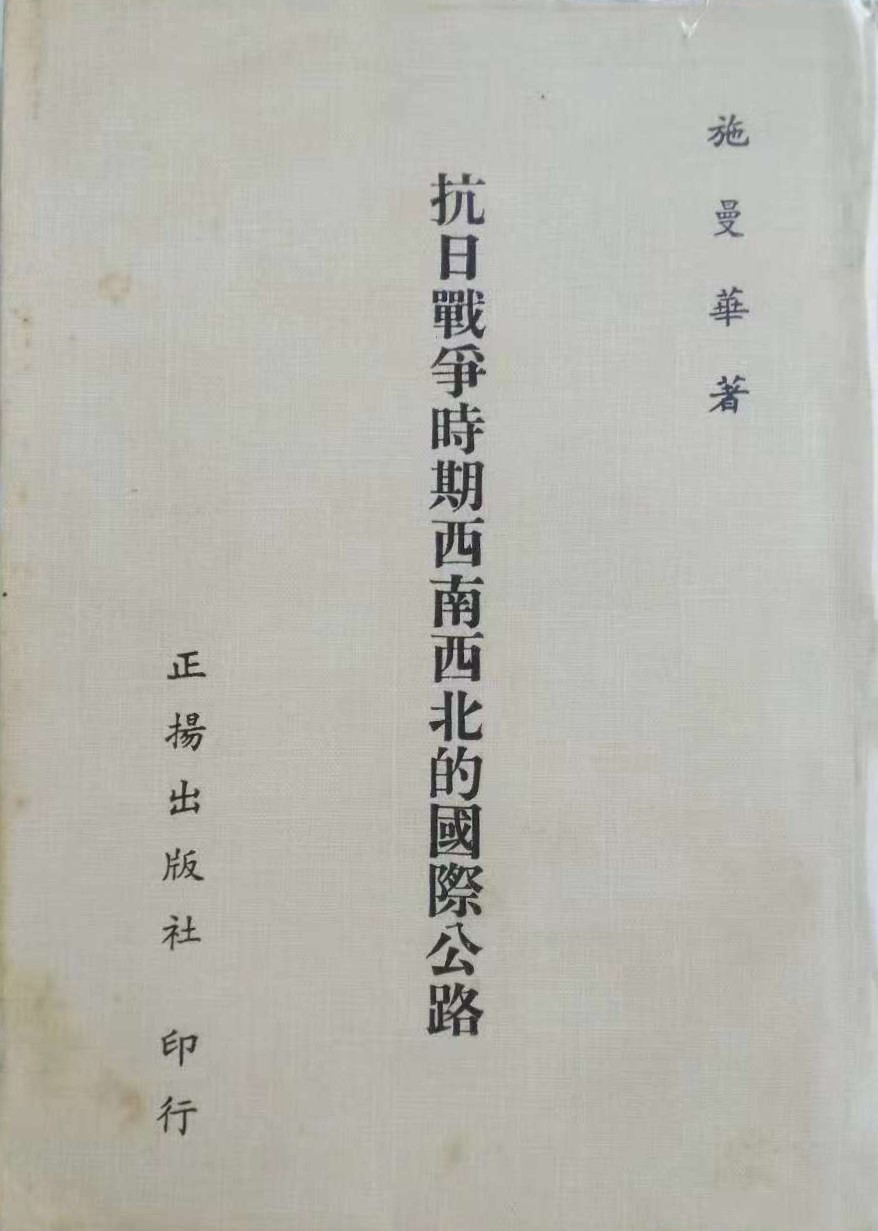 施曼華著
抗日戰爭時期西南西北的國際公路
正揚出版社 印行